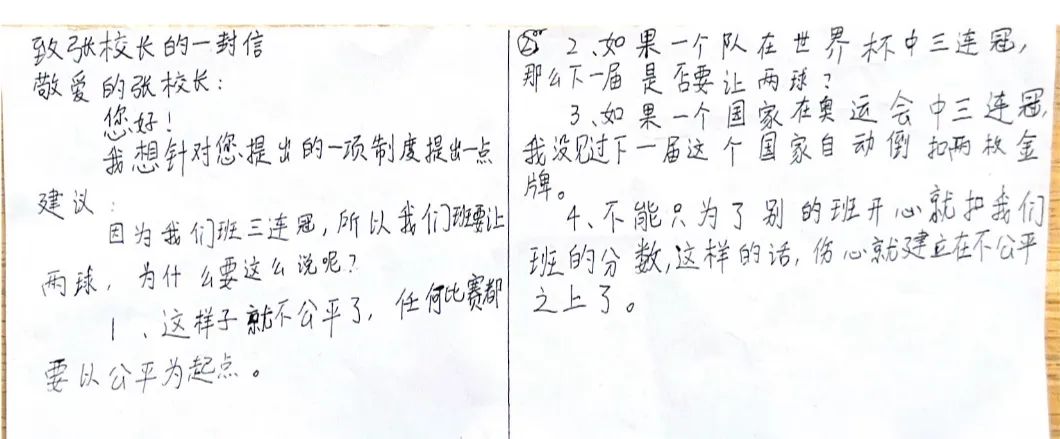 致张校长的一封信
敬爱的张校长：
您好！
我想针对您提出的一项制度提出一点
建议：
因为我们班三连冠，所以我们班要让
两球，为什么要这么说呢？
1、这样子就不公平了，任何比赛都
要以公平为起点。
2、如果一个队在世界杯中三连冠，
那么下一届是否要让两球？
3、如果一个国家在奥运会中三连冠，
我没见过下一届这个国家自动倒扣两枚金
牌。
4、不能只为了别的班开心就扣我们
班的分数，这样的话，伤心就建立在不公平
之上了。